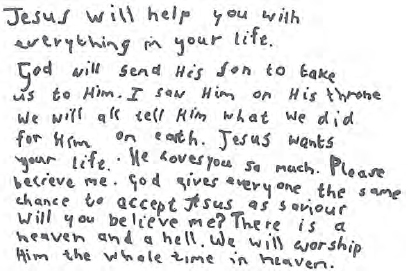 Jesus will help you with
everything in your life.
God will send His Son to take
us to Him. I saw Him on His throne
We will all tell Him what we did
for Him on earth. Jesus wants
your life. He loves you so much. Please
believe me. God gives everyone the same
chance to accept Jesus as saviour
Will you believe me? There is a
heaven and a hell. We will worship
Him the whole time in heaven.